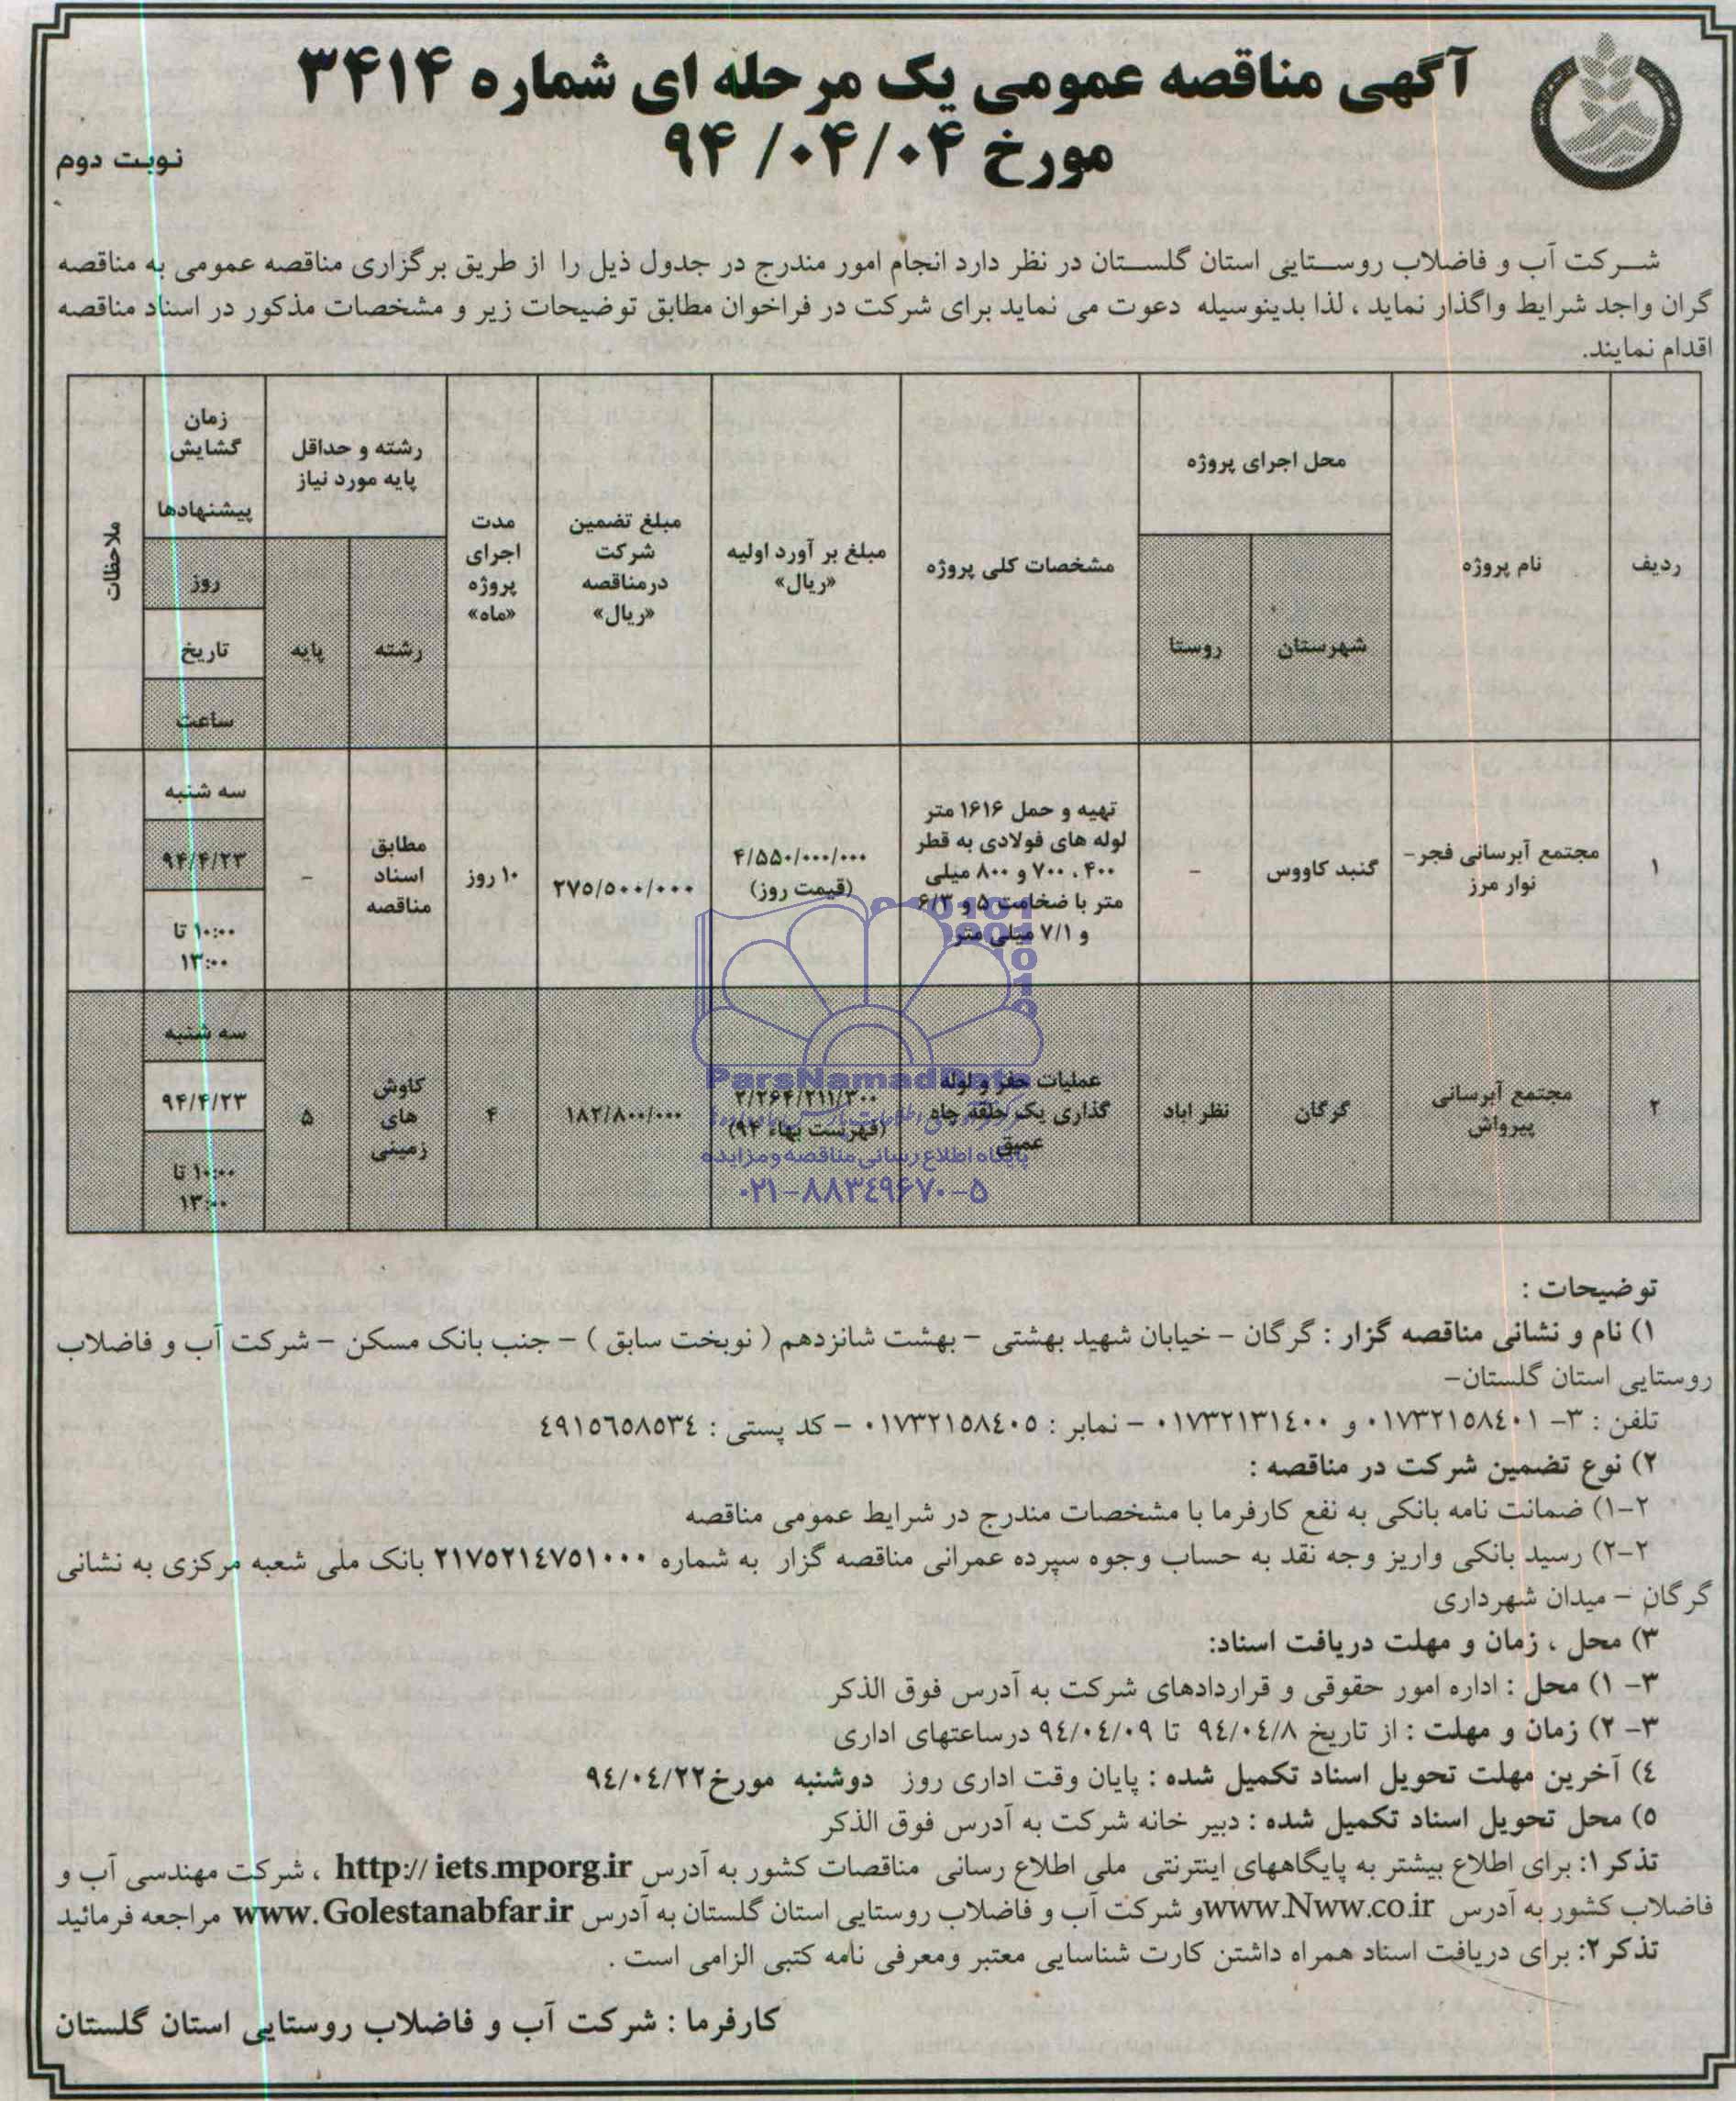 آگهی مناقصه عمومی یک مرحله ای شماره ۳۴۱۴
مورخ ۹۴/۰۴/۰۴
نوبت دوم
شرکت آب و فاضلاب روستایی استان گلستان در نظر دارد انجام امور مندرج در جدول ذیل را از طریق برگزاری مناقصه عمومی به مناقصه
گران واجد شرایط واگذار نماید ، لذا بدینوسیله دعوت می نماید برای شرکت در فراخوان مطابق توضیحات زیر و مشخصات مذکور در اسناد مناقصه
اقدام نمایند.
ردیف
نام پروژه
محل اجرای پروژه
شهرستان
روستا
مشخصات کلی پروژه
مبلغ بر آورد اولیه
«ریال»
مبلغ تضمین
شرکت
درمناقصه
«ریال»
مدت
اجرای
پروژه
«ماه»
رشته و حداقل
پایه مورد نیاز
رشته
پایه
زمان
گشایش
پیشنهادها
روز
تاریخ
ساعت
ملاحظات
۱
مجتمع آبرسانی فجر-
نوار مرز
گنبد کاووس
-
تهیه و حمل ۱۶۱۶ متر
لوله های فولادی به قطر
۴۰۰ ، ۷۰۰ و ۸۰۰ میلی
متر با ضخامت ۵ و ۶/۳
و ۷/۱ میلی متر
۴/۵۵۰/۰۰۰/۰۰۰
(قیمت روز)
۲۷۵/۵۰۰/۰۰۰
۱۰ روز
مطابق
اسناد
مناقصه
-
سه شنبه
۹۴/۴/۲۳
۱۰:۰۰ تا
۱۳:۰۰
۲
مجتمع آبرسانی
پیرواش
گرگان
نظر اباد
عملیات حفر و لوله
گذاری یک حلقه چاه
عمیق
۲/۲۶۴/۲۱۱/۳۰۰
(فهرست بهاء ۹۴)
۱۸۲/۸۰۰/۰۰۰
۴
کاوش
های
زمینی
۵
سه شنبه
۹۴/۴/۲۳
۱۰:۰۰ تا
۱۳:۰۰
ParsNamadData
پایگاه اطلاع رسانی مناقصه و مزایده
۰۲۱-۸۸۳۴۹۶۷۰-۵
توضیحات :
۱) نام و نشانی مناقصه گزار : گرگان - خیابان شهید بهشتی - بهشت شانزدهم ( نوبخت سابق ) - جنب بانک مسکن - شرکت آب و فاضلاب
روستایی استان گلستان-
تلفن : ۳- ۰۱۷۳۲۱۵۸٤۰۱ و ۰۱۷۳۲۱۳۱٤۰۰ - نمابر : ۰۱۷۳۲۱۵۸٤۰۵ - کد پستی : ٤۹۱۵٦۵۸۵۳٤
۲) نوع تضمین شرکت در مناقصه :
۲-۱) ضمانت نامه بانکی به نفع کارفرما با مشخصات مندرج در شرایط عمومی مناقصه
۲-۲) رسید بانکی واریز وجه نقد به حساب وجوه سپرده عمرانی مناقصه گزار به شماره ۲۱۷۵۲۱٤۷۵۱۰۰۰ بانک ملی شعبه مرکزی به نشانی
گرگان - میدان شهرداری
۳) محل ، زمان و مهلت دریافت اسناد:
۳- ۱) محل : اداره امور حقوقی و قراردادهای شرکت به آدرس فوق الذکر
۳- ۲) زمان و مهلت : از تاریخ ۹٤/۰٤/۸ تا ۹٤/۰٤/۰۹ درساعتهای اداری
٤) آخرین مهلت تحویل اسناد تکمیل شده : پایان وقت اداری روز دوشنبه مورخ۹٤/۰٤/۲۲
۵) محل تحویل اسناد تکمیل شده : دبیر خانه شرکت به آدرس فوق الذکر
تذکر۱: برای اطلاع بیشتر به پایگاههای اینترنتی ملی اطلاع رسانی مناقصات کشور به آدرس http:// iets.mporg.ir ، شرکت مهندسی آب و
فاضلاب کشور به آدرس www.Nww.co.ir و شرکت آب و فاضلاب روستایی استان گلستان به آدرس www.Golestanabfar.ir مراجعه فرمائید
تذکر۲: برای دریافت اسناد همراه داشتن کارت شناسایی معتبر ومعرفی نامه کتبی الزامی است .
کارفرما : شرکت آب و فاضلاب روستایی استان گلستان